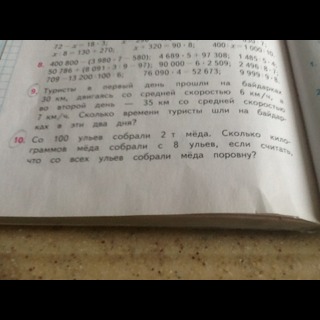 72 – x = 18 · 3;
x · 8 = 130 + 270;
x + 320 = 90 · 8;
8. 400 800 – (3 980 · 7 – 580); 4 689 · 5 + 97 308; 1 485 · 5 ·
50 786 + (8 091 · 3 + 9 · 97); 90 000 – 6 · 2 509; 2 496 · 8 · 7
708 · 13 200 · 100 · 6; 76 090 · 4 – 52 673; 9 999 · 9 · 8
9. Туристы в первый день прошли на байдарках
30 км, двигаясь со средней скоростью 6 км/ч, а
во второй день — 35 км со средней скоростью
7 км/ч. Сколько времени туристы шли на байдар-
ках в эти два дня?
10. Со 100 ульев собрали 2 т мёда. Сколько кило-
граммов мёда собрали с 8 ульев, если считать,
что со всех ульев собрали мёда поровну?